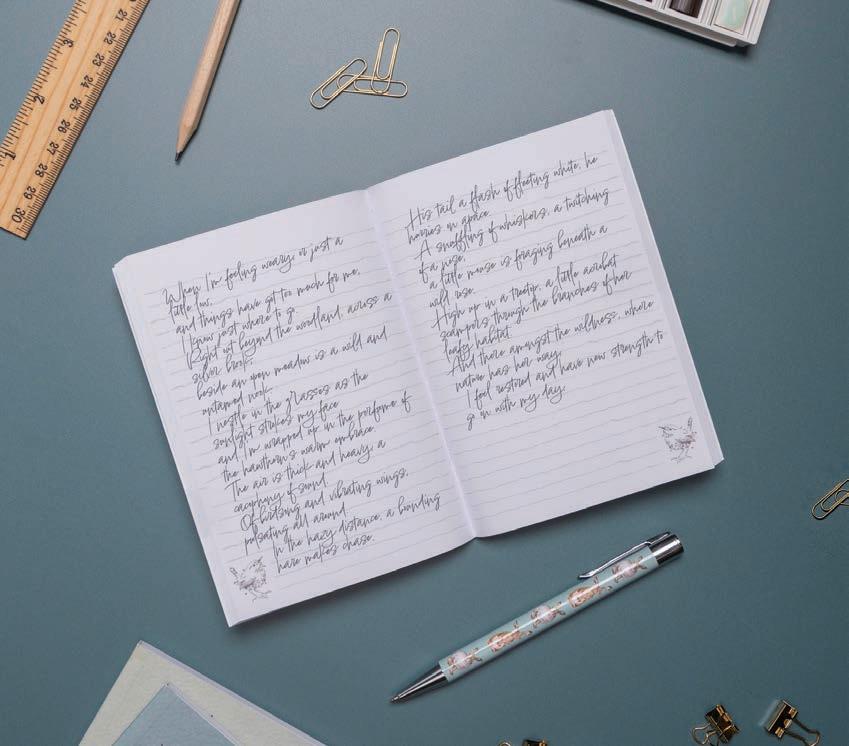 When I'm feeling weary, or just a
little low,
and things have got too much for me,
I know just where to go.
Right out beyond the woodland, across a
silver brook,
beside an open meadow is a wild and
untamed nook.
I nestle in the grasses as the
sunlight strokes my face
and I'm wrapped up in the perfume of
the hawthorn's warm embrace.
The air is thick and heavy, a
cacophony of sound
Of birdsong and vibrating wings,
pulsating all around.
In the hazy distance, a bounding
hare makes chase.
His tail a flash of fleeting white, he
hurries on apace.
A snuffling of whiskers, a twitching
of a nose,
a little mouse is foraging beneath a
wild rose.
High up in a treetop, a little acrobat
scampers through the branches of her
leafy habitat.
And there amongst the wildness, where
nature has her way,
I feel restored and have new strength to
go on with my day.
1
2
3
21
22
23
24
25
26
27
28
29
30